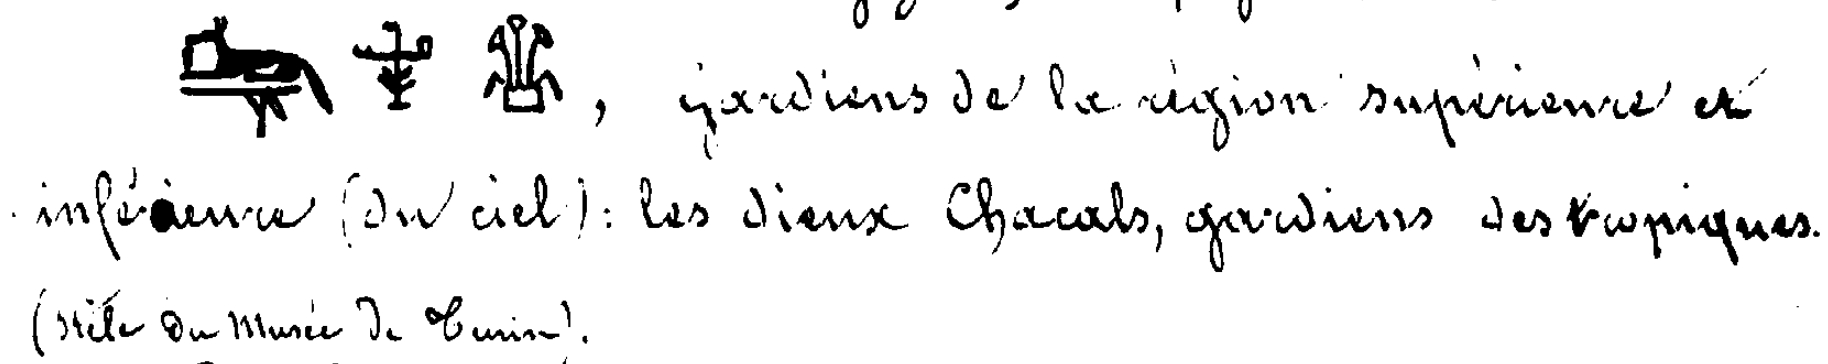 , gardiens de la région supérieure et
inférieure (du ciel) : les dieux Chacals, gardiens des tropiques.
(Stèle du Musée de Turin).